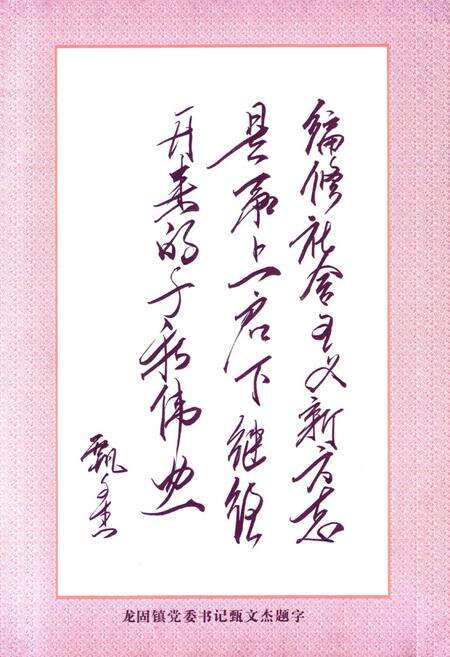 编修社会主义新方志
是承上启下继往
开来的千秋伟业
甄文杰
龙固镇党委书记甄文杰题字